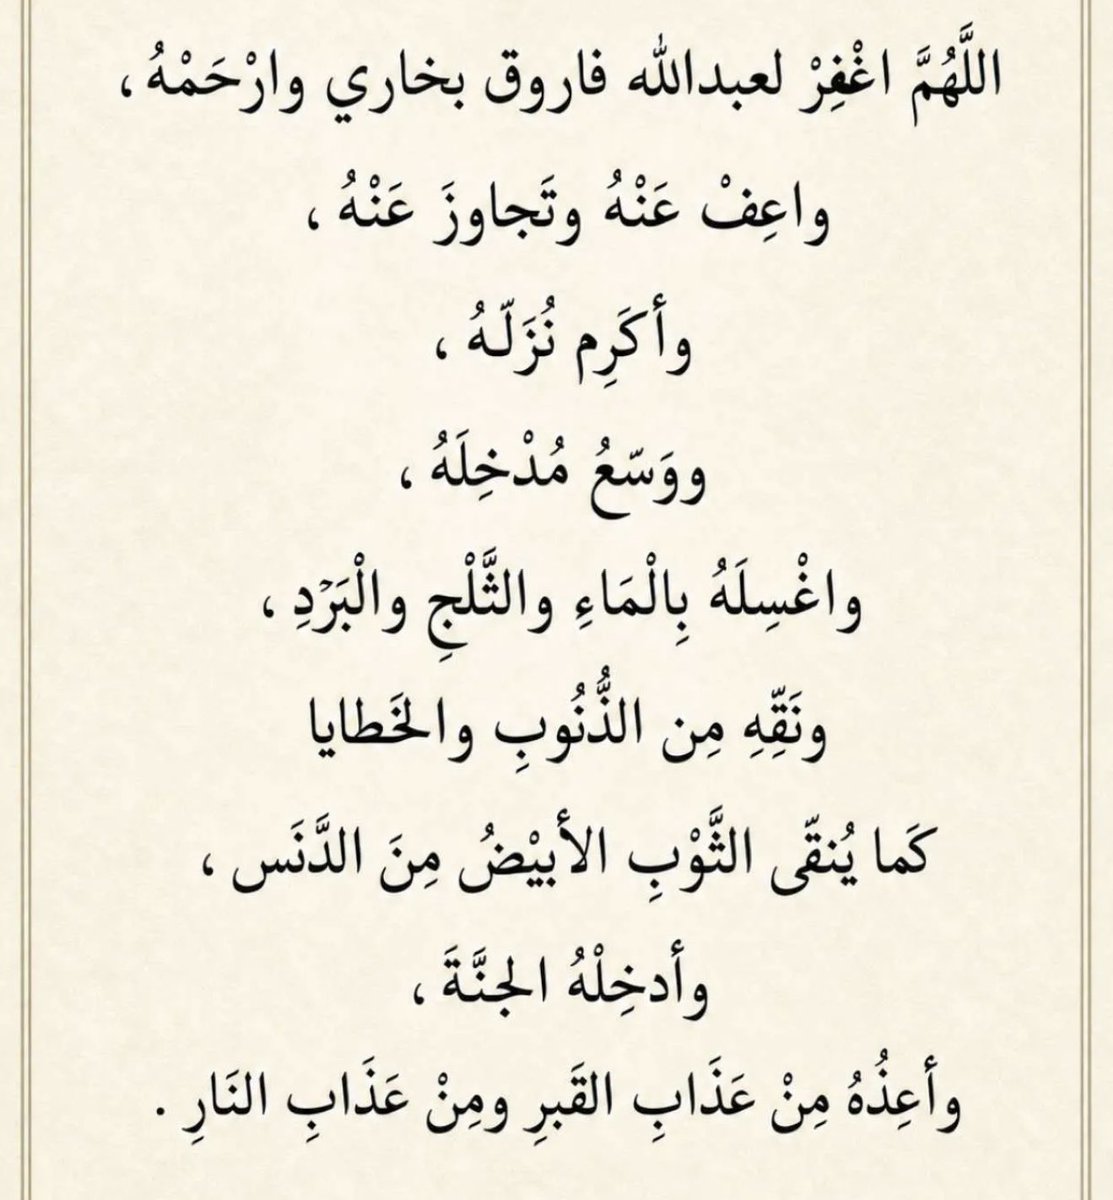 اللَّهُمَّ اغْفِرْ لعبدالله فاروق بخاري وارْحَمْهُ ،
واعِفْ عَنْهُ وتَجاوزَ عَنْهُ ،
وأكَرِم نُزَلّهُ ،
ووَسّعُ مُدْخِلَهُ ،
واغْسِلَهُ بِالْمَاءِ والثَّلْجِ والْبَرْدِ ،
ونَقِّهِ مِن الذُّنُوبِ والخَطايا
كَما يُنقّى الثَّوْبِ الأبيْضُ مِنَ الدَّنَس ،
وأدخِلْهُ الجنَّةَ ،
وأعِذُهُ مِنْ عَذَابِ القَبرِ ومِنْ عَذَابِ النَارِ .